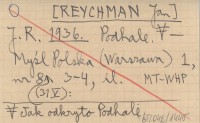 [REYCHMAN Jan]
J.R. 1936. Podhale. #—
Myśl Polska (Warszawa) 1,
nr 3-4, il. MT-WHP
(31V):
# Jak odkryto Podhale